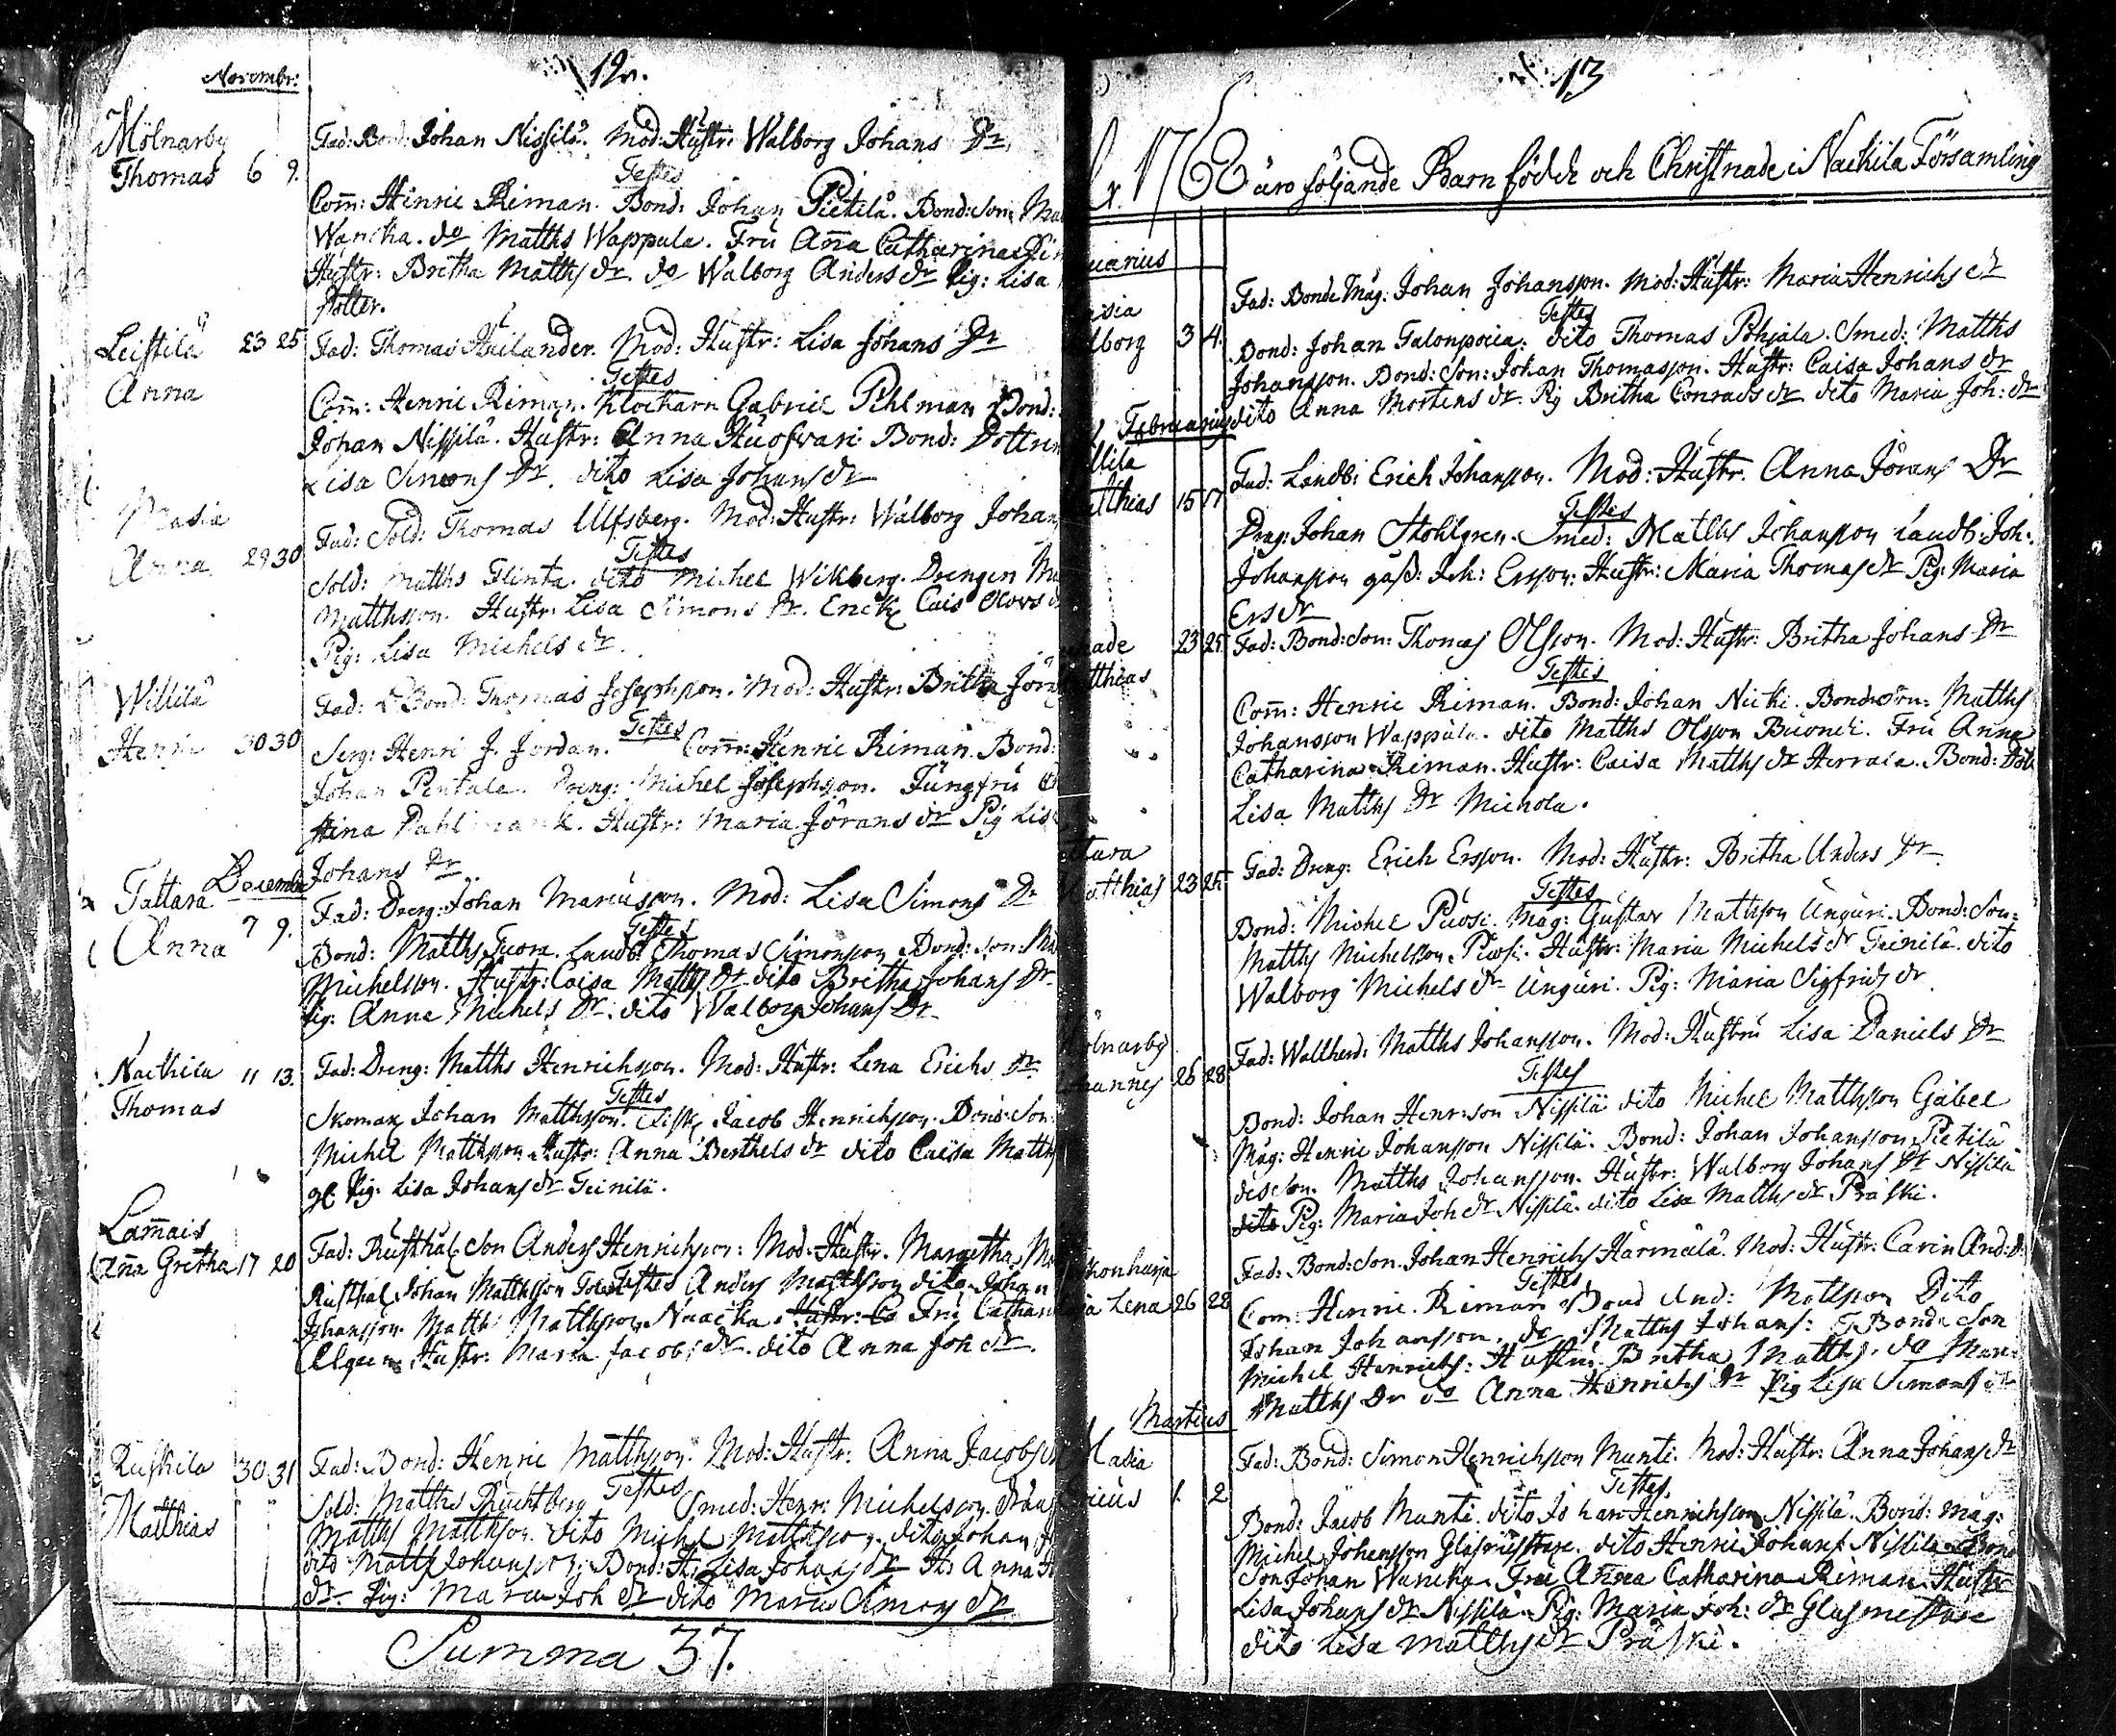 12.
Novembr:
Mölnarby
Thomas 6 9.
Fad: Bond: Johan Nissilä. Mod: Hustr: Walborg Johans Dr
Testes
Com̄: Hinric Riman. Bond: Johan Pietilä. Bond: Son:
Wancka. do Matths Wappula. Fru An̄a Catharina
Hustr: Britha Matths dr. do Walborg Anders dr Pig: Lisa
Potter.
Leistilä 23 25
Anna
Fad: Thomas Hailander. Mod: Hustr: Lisa Johans Dr
Testes
Com̄: Henric Riman. Klockarn Gabriel Pihlman Bond:
Johan Nissilä. Hustr: Anna Huofvari Bond:
Lisa Simons Dr. dito Lisa Johans dr
Masia
Anna 29 30
Fad: Sold: Thomas Ulfsberg. Mod: Hustr: Walborg Johan
Testes
Sold: Matths Flinta. dito Michel Wikberg. Drengen
Matthsson. Hustr: Lisa Simons Dr. Enck Cais Olovs
Pig: Lisa Michels dr.
Willilä
Henric 30 30
Fad: Bond: Thomas Josephson. Mod: Hustr: Britha
Testes
Serg: Henri J. Jordan. Com̄: Henric Riman. Bond:
Johan Pentala. Dreng: Michel Josephsson. Jungfru
Stina Hustr: Maria Jörans dr Pig
Johans Dr
December
Tattara
Anna 7 9.
Fad: Dreng: Johan Marcusson. Mod: Lisa Simons Dr
Testes
Bond: Matths Tuora. Landb: Thomas Simonsson Bond: Son:
Michelsson. Hustr: Caisa Matths Dr dito Britha Johans Dr
Pig: Anna Michels Dr. dito Walborg Johans Dr
Nackila 11 13
Thomas
Fad: Dreng: Matths Henrichsson. Mod: Hustr: Lena Erichs Dr
Testes
Skomak Johan Matthsson. Jacob Henrichsson. Bond: Son:
Michel Matthsson Hustr: Anna Berthels dr dito Caisa Matths
Pig: Lisa Johans dr Teinilä.
Lam̄ais
An̄a Gretha 17 20
Fad: Rusthål: Son Anders Henrichsson: Mod: Hustr. Margetha
Testes
Rusthål Johan Matthsson Anders Matthsson dito Johan
Johansson Matths Matthsson Naacka. Fru
Hustr: Maria Jacobs dr. dito Anna Joh dr.
Ruskila 30 31
Matthias
Fad: Bond: Henric Matthsson. Mod: Hustr: Anna Jacobs
Testes
Sold: Matths Smed: Henr: Michelsson
Matths Matthsson dito Michel Matthsson dito Johan
dito Matths Johansson. Bond: H: Lisa Johans dr H: Anna
dr Pig: Maria Joh dr dito Maria Simons dr
Summa 37.
13
1760 äro följande Barn födde och Christnade i Nackila Församling
uarius
sia
lborg 3 4.
Fad: Bonde Måg: Johan Johansson. Mod: Hustr: Maria Henrichs dr
Testes
Bond: Johan Talonpoica: dito Thomas Pohjala. Smed: Matths
Johansson. Bond: Son: Johan Thomasson. Hustr: Caisa Johans dr
dito Anna Mortens dr. Pig Britha Conrads dr dito Maria Joh: dr
Februarius
llila
tthias 15 17
Fad: Landb: Erich Johansson. Mod: Hustr. Anna Jörans Dr
Testes
Drag: Johan Stohlgren. Smed: Matths Johansson Landb: Joh:
Johansson Joh: Ersson: Hustr: Maria Thomas dr Pig: Maria
Ers dr
ade 23 25
tthias
Fad: Bond: Son: Thomas Olsson. Mod: Hustr: Britha Johans Dr
Testes
Com̄: Henric Riman. Bond: Johan Nicki. Bond: Son: Matths
Johansson Wappula. dito Matths Olsson Buoni. Fru Anna
Catharina Riman. Hustr: Caisa Matths dr Herrala. Bond:
Lisa Matths Dr Michola.
tara
atthias 23 25
Fad: Dreng: Erich Ersson. Mod: Hustr: Britha Anders Dr
Testes
Bond: Michel Piuosi. Måg: Gustav Mathson Unguri. Bond: Son:
Matths Michelsson Piuosi. Hustr: Maria Michels dr Teinilä. dito
Walborg Michels dr Unguri. Pig: Maria Sigfrids dr
ölnarby
annes 26 28
Fad: Wallherd: Matths Johansson. Mod: Hustru Lisa Daniels Dr
Testes
Bond: Johan Henr:son Nissilä dito Michel Matthsson Gäbel
Måg: Henric Johansson Nissilä. Bond: Johan Johansson Pietilä
des Son. Matths Johansson. Hustr: Walborg Johans Dr Nissilä
dito Pig: Maria Joh dr Nissilä. dito Lisa Matths dr Präski.
konharja
aja Lena 26 28
Fad: Bond: Son. Johan Henrichs Härmälä. Mod: Hustr: Carin And: d
Testes
Com: Henric. Riman Bond And: Matsson Dito
Johan Johansson. do Matths Johans: Bonde Son
Michel Henrichs: Hustru Britha Matths. do
Matths Dr do Anna Henrichs Dr Pig Lisa Simons dr
Martius
Masia
ricus 1. 2
Fad: Bond: Simon Henrichsson Munti. Mod: Hustr: Anna Johans dr
Testes
Bond: Jacob Munti. dito Johan Henrichsson Nissilä. Bond: Måg:
Michel Johansson Glasmestare. dito Henric Johans Nissilä. Bond
Son Johan Wancka. Fru Anna Catharina Riman. Hustr
Lisa Johans dr Nissilä. Pig: Maria Joh: dr Glasmestare
dito Lisa Matths dr Präski.